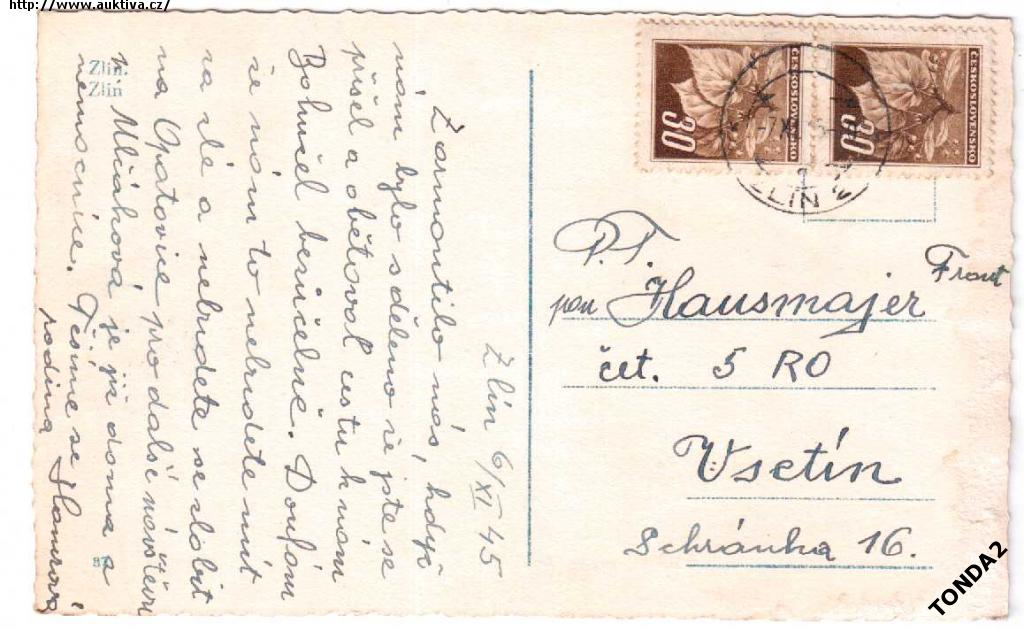 http://www.auktiva.cz/
Zlín.
Zlín
Zlín 6/XI 45
Zarmoutilo nás, když
nám bylo sděleno že jste se
přišel a obětoval cestu k nám
Bohužel bezúčelně. Doufám
že nám to nebudete mít
za zlé a nebudete se zlobit
na Opatovice pro další návštěvu
Mliáková je již doma z
nemocnice. Těšíme se
rodina
30
ČESKOSLOVENSKO
30
ČESKOSLOVENSKO
ZLÍN 2
P.T.
pan Hausmajer Frant
čet. 5 RO
Vsetín
Schránka 16.
TONDA2